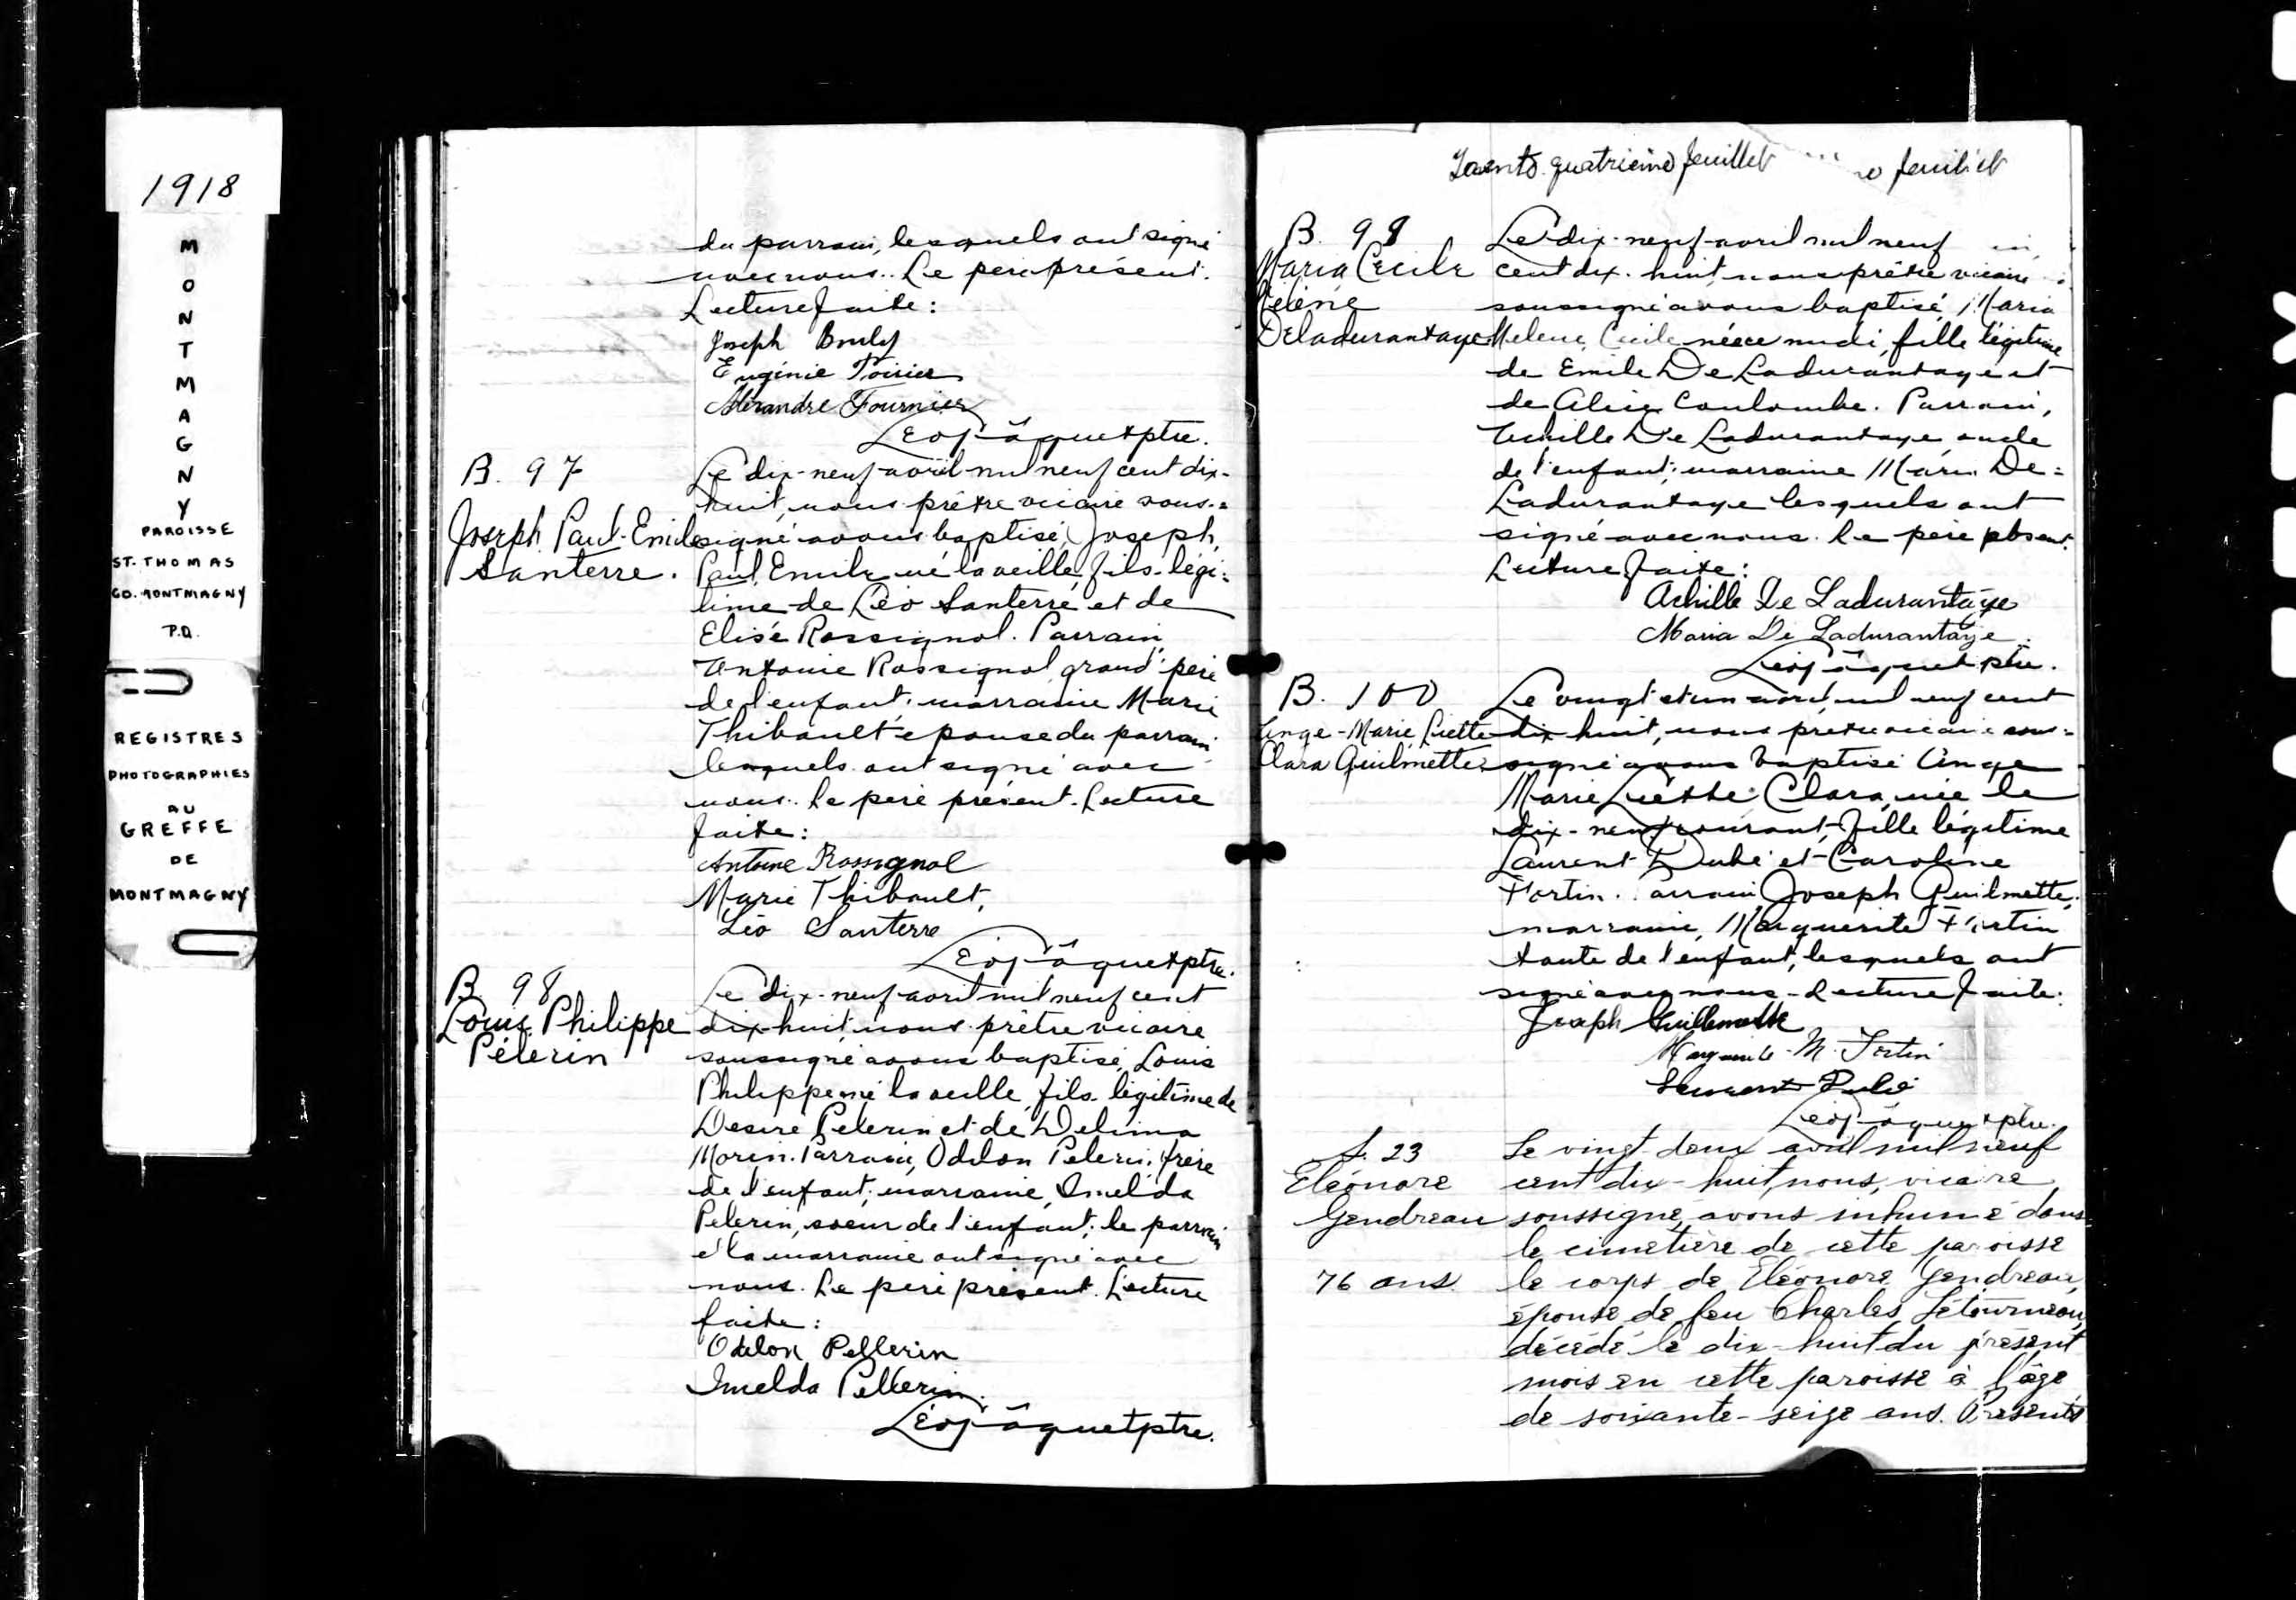 1918
MONTMAGNY
PAROISSE
ST. THOMAS
CO. MONTMAGNY
P.Q.
REGISTRES
PHOTOGRAPHIES
AU
GREFFE
DE
MONTMAGNY
du parrain, lesquels ont signé
avec nous. Le père présent.
Lecture faite:
Joseph Boulet
Eugénie Poirier
Alexandre Fournier
Léo Pâquet ptre.
B. 97
Joseph Paul-Emile
Santerre.
Le dix-neuf avril mil neuf cent dix-
huit, nous prêtre vicaire sous-
signé avons baptisé, Joseph,
Paul, Emile né la veille, fils légi-
time de Léo Santerre et de
Elisé Rossignol. Parrain,
Antoine Rossignol grand'père
de l'enfant; marraine Marie
Thibault épouse du parrain
lesquels ont signé avec
nous. Le père présent. Lecture
faite:
Antoine Rossignol
Marie Thibault,
Léo Santerre
Léo Pâquet ptre.
B 98
Louis Philippe
Pélerin
Le dix-neuf avril mil neuf cent
dix-huit, nous prêtre vicaire
soussigné avons baptisé, Louis
Philippe né la veille, fils légitime de
Desiré Pelerin et de Delima
Morin. Parrain, Odilon Pelerin, frère
de l'enfant; marraine, Imelda
Pelerin, soeur de l'enfant; le parrain
et la marraine ont signé avec
nous. Le père présent. Lecture
faite:
Odilon Pellerin
Imelda Pellerin.
Léo Pâquet ptre.
Trente quatrième feuillet feuillet
B. 99
Maria Cecile
Helène
Deladurantaye
Le dix-neuf avril mil neuf
cent dix-huit, nous prêtre vicaire
soussigné avons baptisé, Maria
Helene, Cecile née ce midi, fille légitime
de Emile De Ladurantaye et
de Alice Coulombe. Parrain,
Achille De Ladurantaye, oncle
de l'enfant; marraine Maria De=
Ladurantaye lesquels ont
signé avec nous. Le père absent.
Lecture faite:
Achille De Ladurantaye
Maria De Ladurantaye.
Léo Pâquet ptre.
B. 100
Ange-Marie Liette
Clara Guilmette
Le vingt et un avril, mil neuf cent
dix-huit, nous prêtre vicaire sous=
signé avons baptisé Ange
Marie Liette Clara, née le
dix-neuf courant, fille légitime
Laurent Dubé et Caroline
Fortin. Parrain, Joseph Guilmette;
marraine, Marguerite Fortin
tante de l'enfant, lesquels ont
signé avec nous. Lecture faite:
Joseph Guillemette
Marguerite M. Fortin
Laurent Dubé
Léo Pâquet ptre.
S. 23
Eléonore
Gendreau
76 ans.
Le vingt-deux avril mil neuf
cent dix-huit, nous, vicaire
soussigné, avons inhumé dans
le cimetière de cette paroisse
le corps de Eléonore Gendreau,
épouse de feu Charles Létourneau,
décédé le dix-huit du présent
mois en cette paroisse à l'âge
de soixante-seize ans. Présents